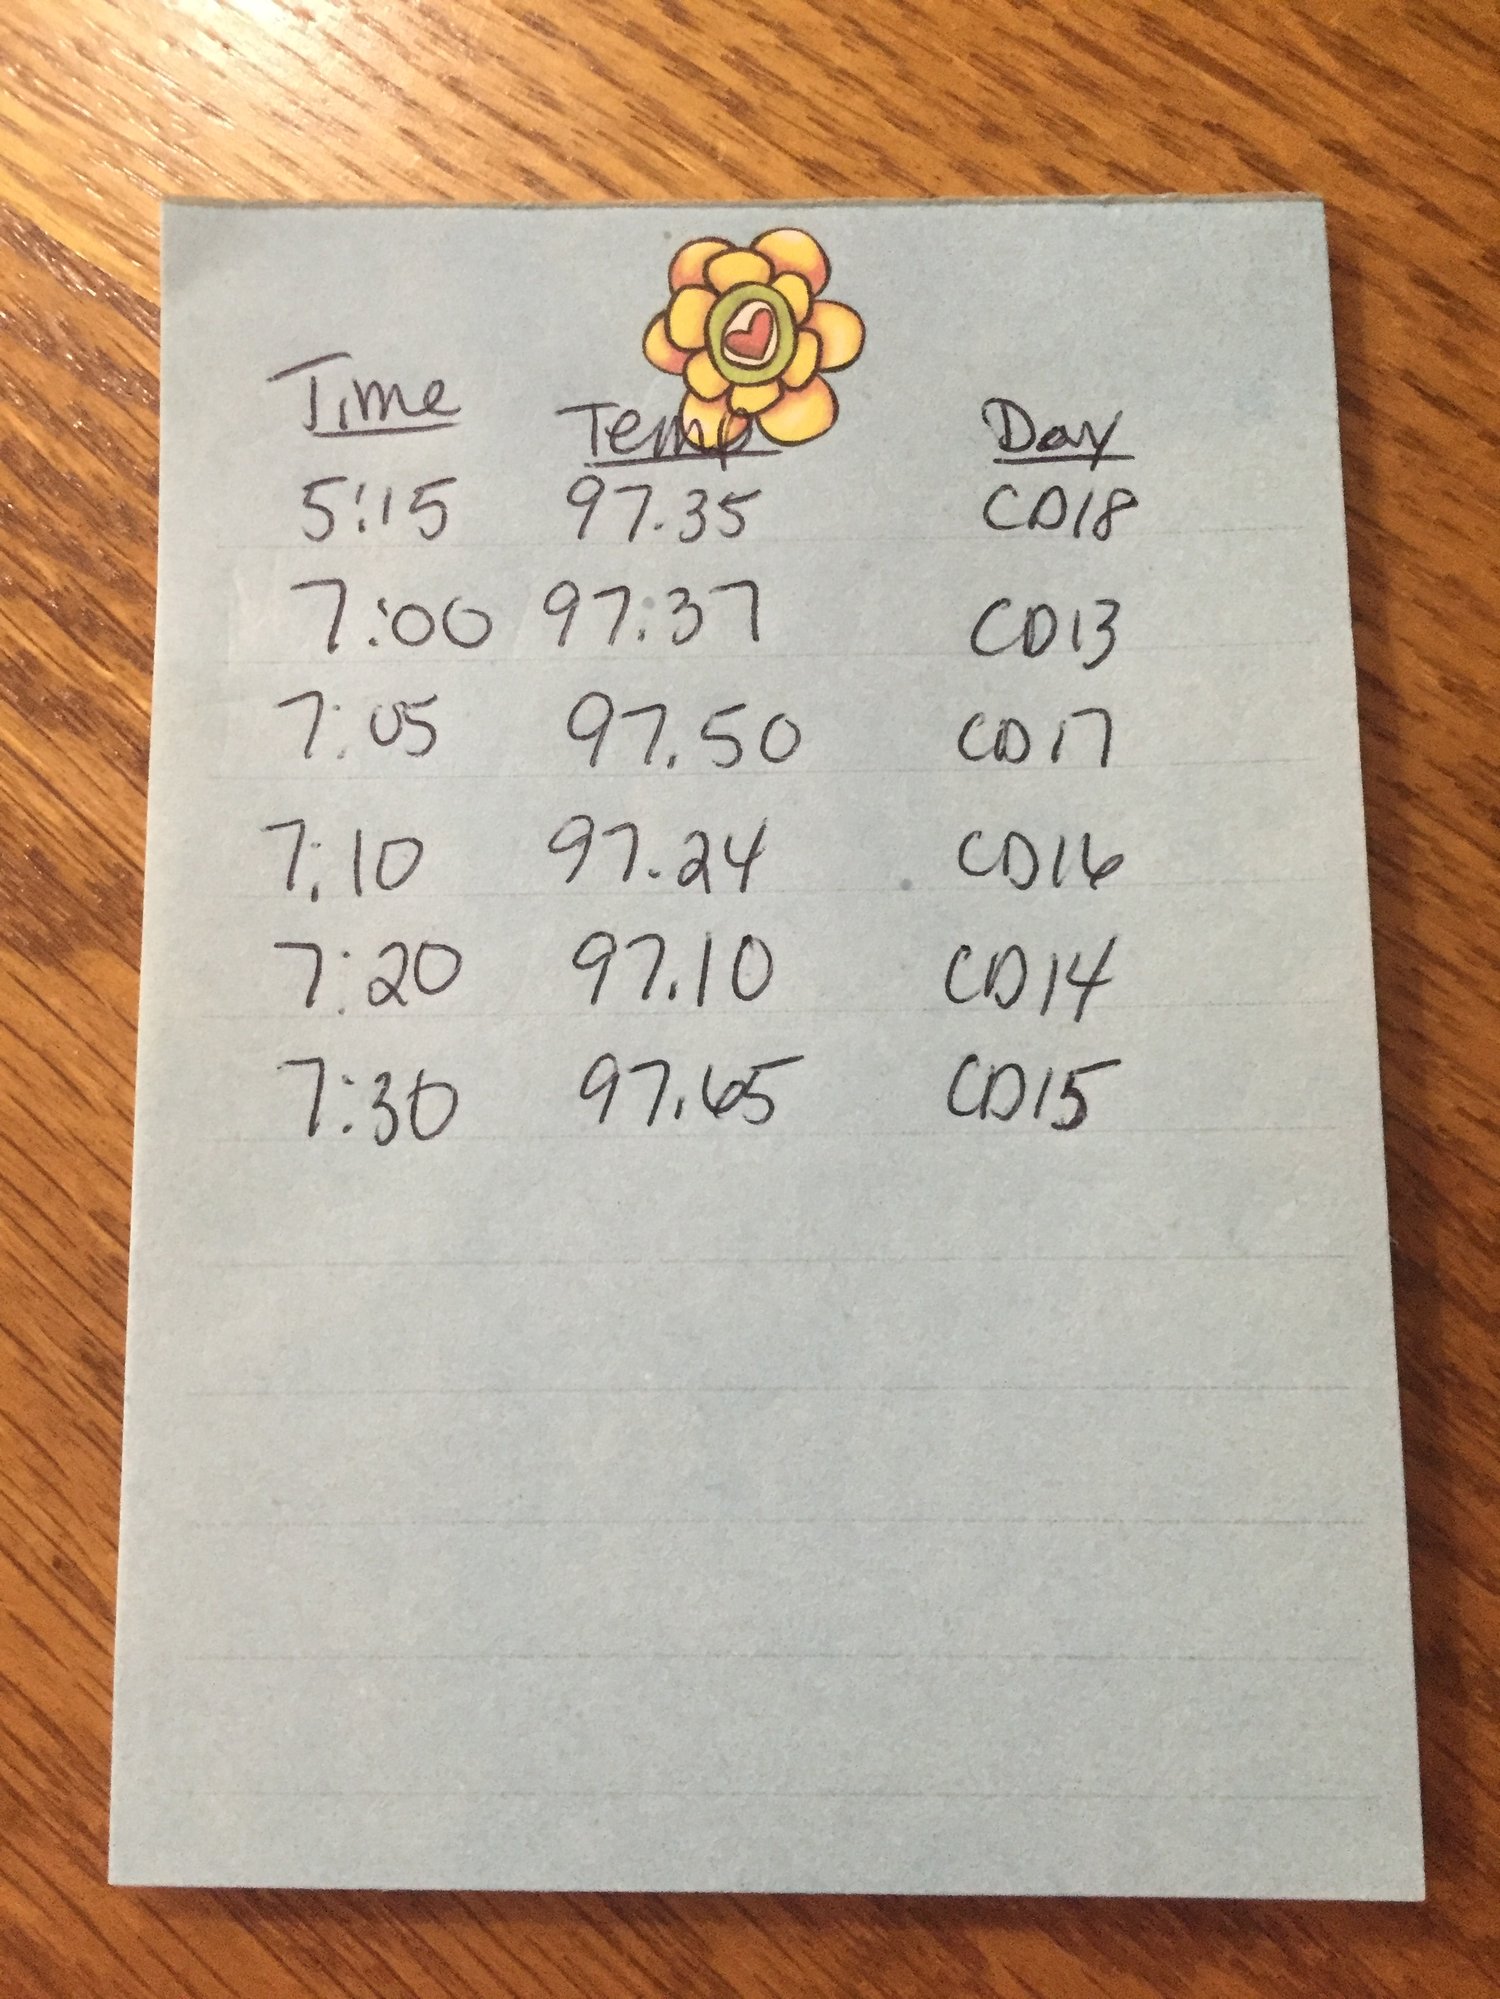 Time Temp Day
5:15 97.35 CD18
7:00 97.37 CD13
7:05 97.50 CD17
7:10 97.24 CD16
7:20 97.10 CD14
7:30 97.65 CD15